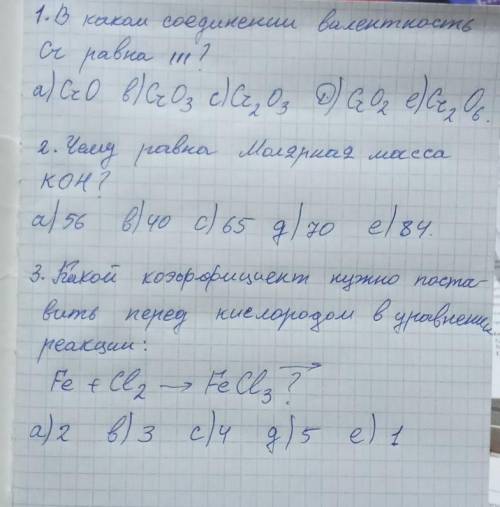 1. В каком соединении валентность
Cr равна III?
а) CrO в) CrO3 с) Cr2O3 D) CrO2 е) Cr2O6.
2. Чему равна Молярная масса
KOH?
а) 56 в) 40 с) 65 д) 70 е) 84.
3. Какой коэффициент нужно поста-
вить перед кислородом в уравнении
реакции:
Fe + Cl2 → FeCl3?
а) 2 в) 3 с) 4 д) 5 е) 1